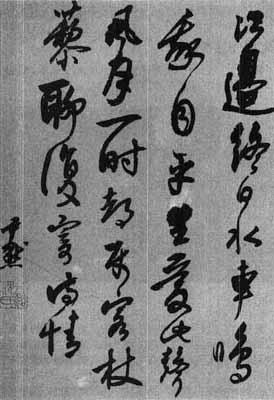 江邊終日水車鳴
我自平生愛此聲
風月一時都屬客杖
藜聊復寄詩情